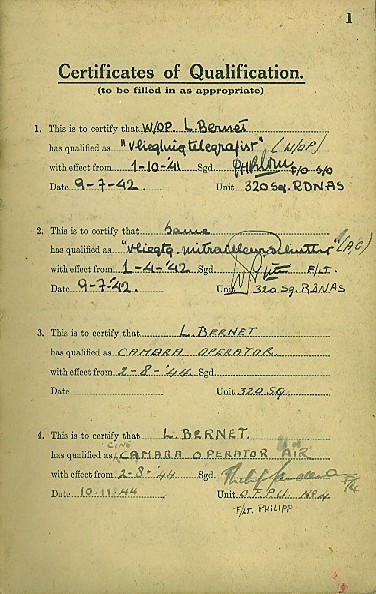 1
Certificates of Qualification.
(to be filled in as appropriate)
1. This is to certify that W/OP. L. Bernet
has qualified as "Vliegtuigtelegrafist" (W/OP)
with effect from 1-10-'41 Sgd. F/O S/O
Date 9-7-'42. Unit 320 Sq. RDNAS
2. This is to certify that same
has qualified as "Vliegtg. mitrailleurschutter" (A,G)
with effect from 1-4-'42 Sgd. F/LT.
Date 9-7-'42. Unit 320 Sq. RDNAS
3. This is to certify that L. BERNET
has qualified as CAMARA OPERATOR.
with effect from 2-8-'44 Sgd.
Date Unit 320 SQ
4. This is to certify that L. BERNET.
CINE
has qualified as CAMARA OPERATOR AIR
with effect from 2-8-'44 Sgd. F/Lt
Date 10.11.44 Unit O.F.P.U. No 4
F/LT. PHILIPP